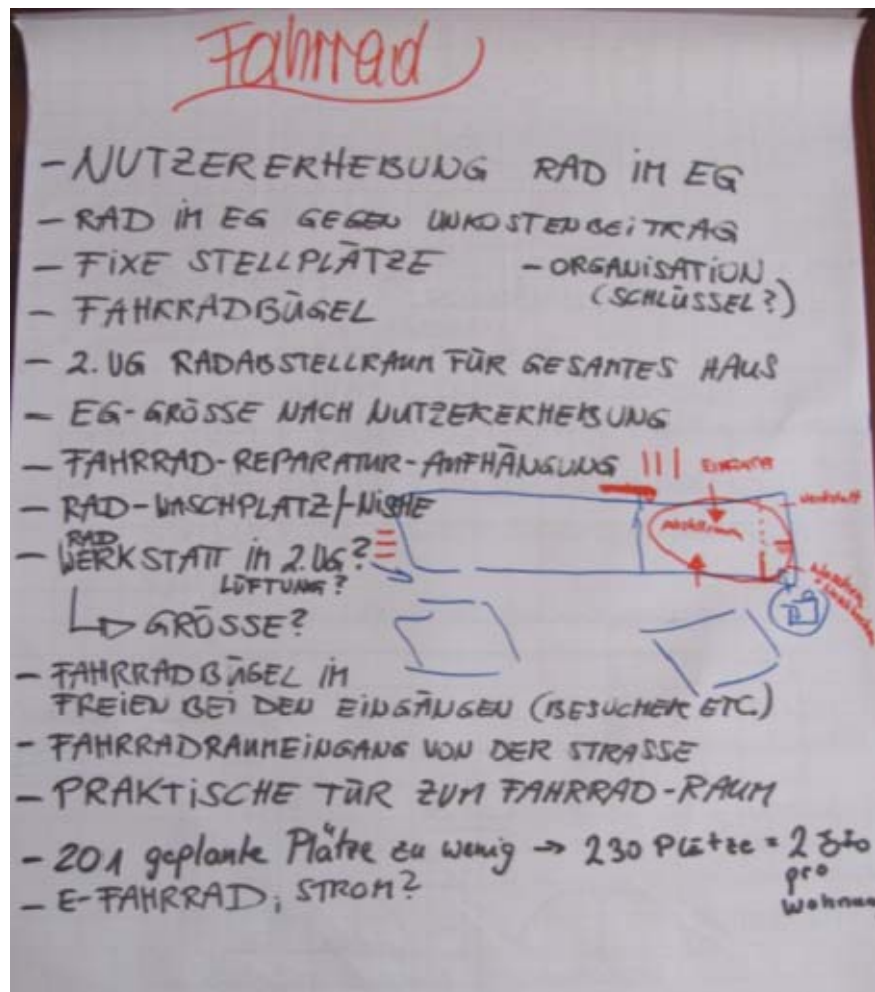 Fahrrad
- NUTZERERHEBUNG RAD IM EG
- RAD IM EG GEGEN UNKOSTENBEITRAG
- FIXE STELLPLÄTZE - ORGANISATION
(SCHLÜSSEL?)
- FAHRRADBÜGEL
- 2. UG RADABSTELLRAUM FÜR GESAMTES HAUS
- EG-GRÖSSE NACH NUTZERERHEBUNG
- FAHRRAD-REPARATUR-AUFHÄNGUNG
- RAD-WASCHPLATZ/-NISCHE
Werkstatt
Abstellraum
- RAD
WERKSTATT in 2. UG?
LÜFTUNG?
GRÖSSE?
- FAHRRADBÜGEL IM
FREIEN BEI DEN EINGÄNGEN (BESUCHER ETC.)
- FAHRRADRAUMEINGANG VON DER STRASSE
- PRAKTISCHE TÜR ZUM FAHRRAD-RAUM
- 201 geplante Plätze zu wenig → 230 Plätze = 2
pro
Wohnun
- E-FAHRRAD; STROM?